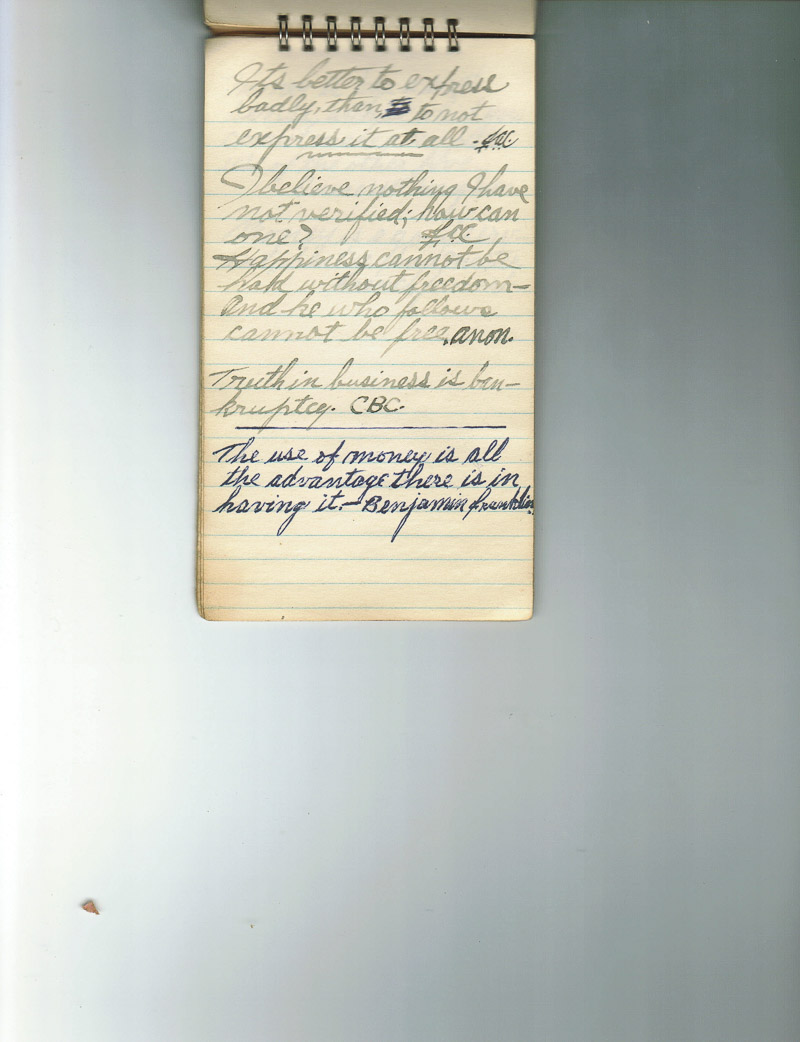 Its better to express
badly, than, to not
express it at all -
I believe nothing I have
not verified; how can
one?
Happiness cannot be
had without freedom—
And he who follows
cannot be free. anon.
Truth in business is ban-
kruptcy. CBC.
The use of money is all
the advantage there is in
having it.— Benjamin Franklin.